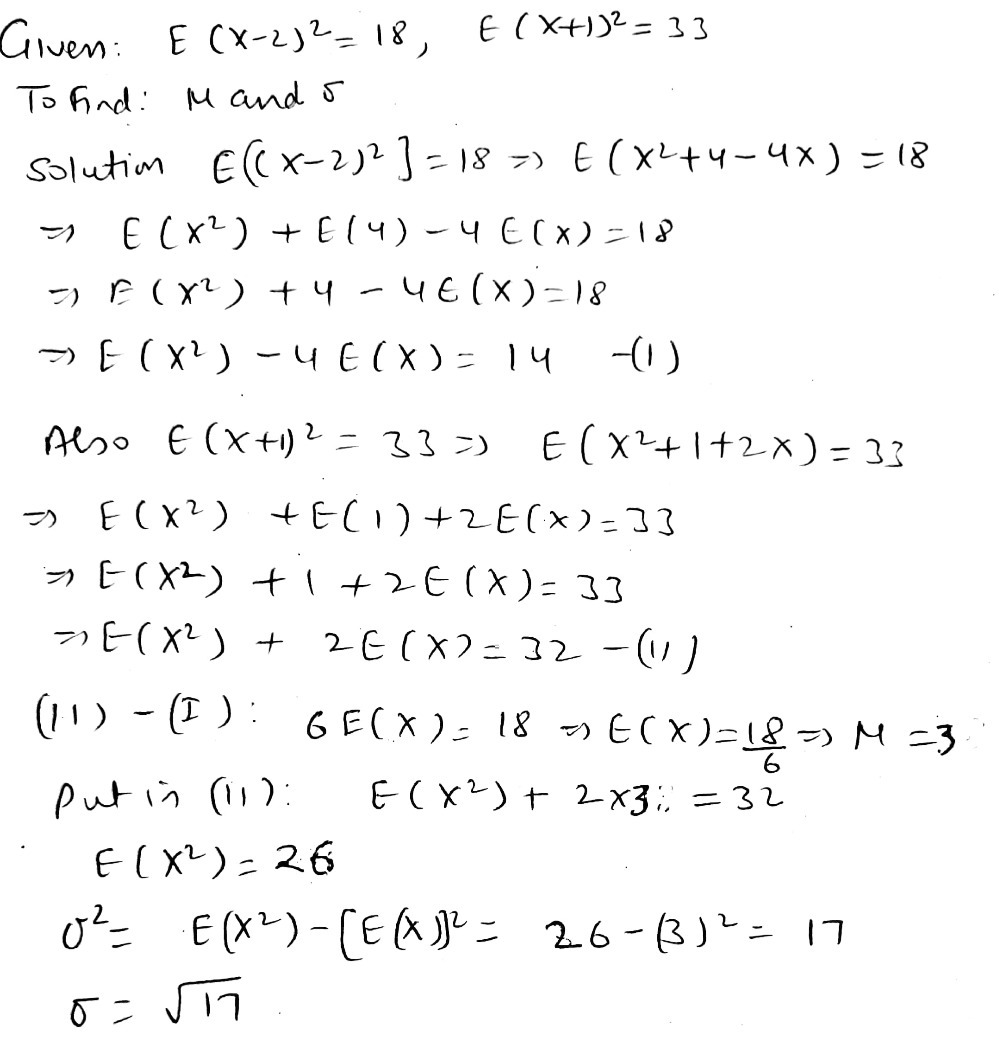 Given: E (X-2)² = 18, E (X+1)² = 33
To find: M and σ
Solution E[(X-2)²] = 18 => E (X²+4-4X) = 18
=> E (X²) + E(4) - 4 E(X) = 18
=> E (X²) + 4 - 4E(X) = 18
=> E (X²) - 4 E(X) = 14 -(1)
Also E (X+1)² = 33 => E (X²+1+2X) = 33
=> E(X²) + E(1) + 2E(X) = 33
=> E(X²) + 1 + 2E(X) = 33
=> E(X²) + 2E(X) = 32 -(11)
(11) - (I): 6E(X) = 18 => E(X) = 18/6 => M = 3
put in (11): E(X²) + 2x3 = 32
E(X²) = 26
σ² = E(X²) - [E(X)]² = 26 - (3)² = 17
σ = √17